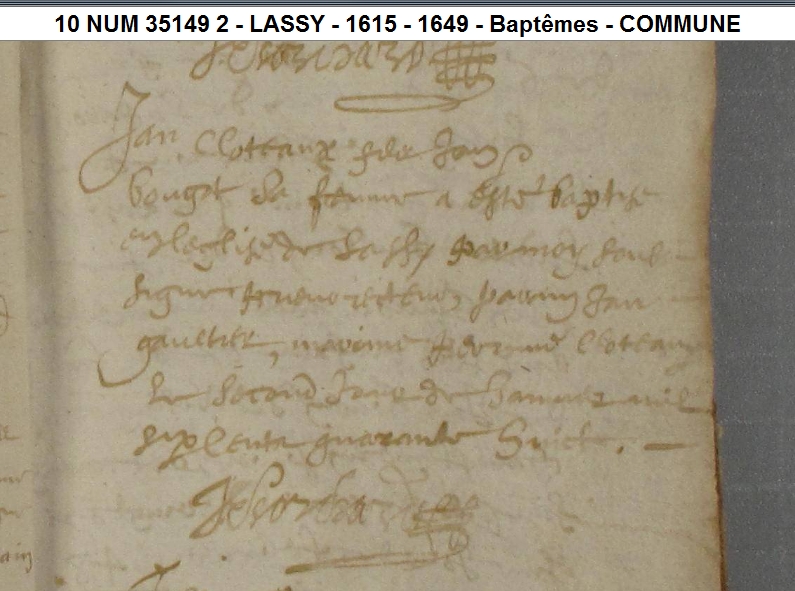 10 NUM 35149 2 - LASSY - 1615 - 1649 - Baptêmes - COMMUNE
Jan Clotteaux filz Jan
bougot sa femme a esté baptise
en leglise de Lassy par moy soubs
signé recteur parin Jan
gaultier, marine perrine Clotteaux
le second jour de Janvier mil
six cents quarante huict.